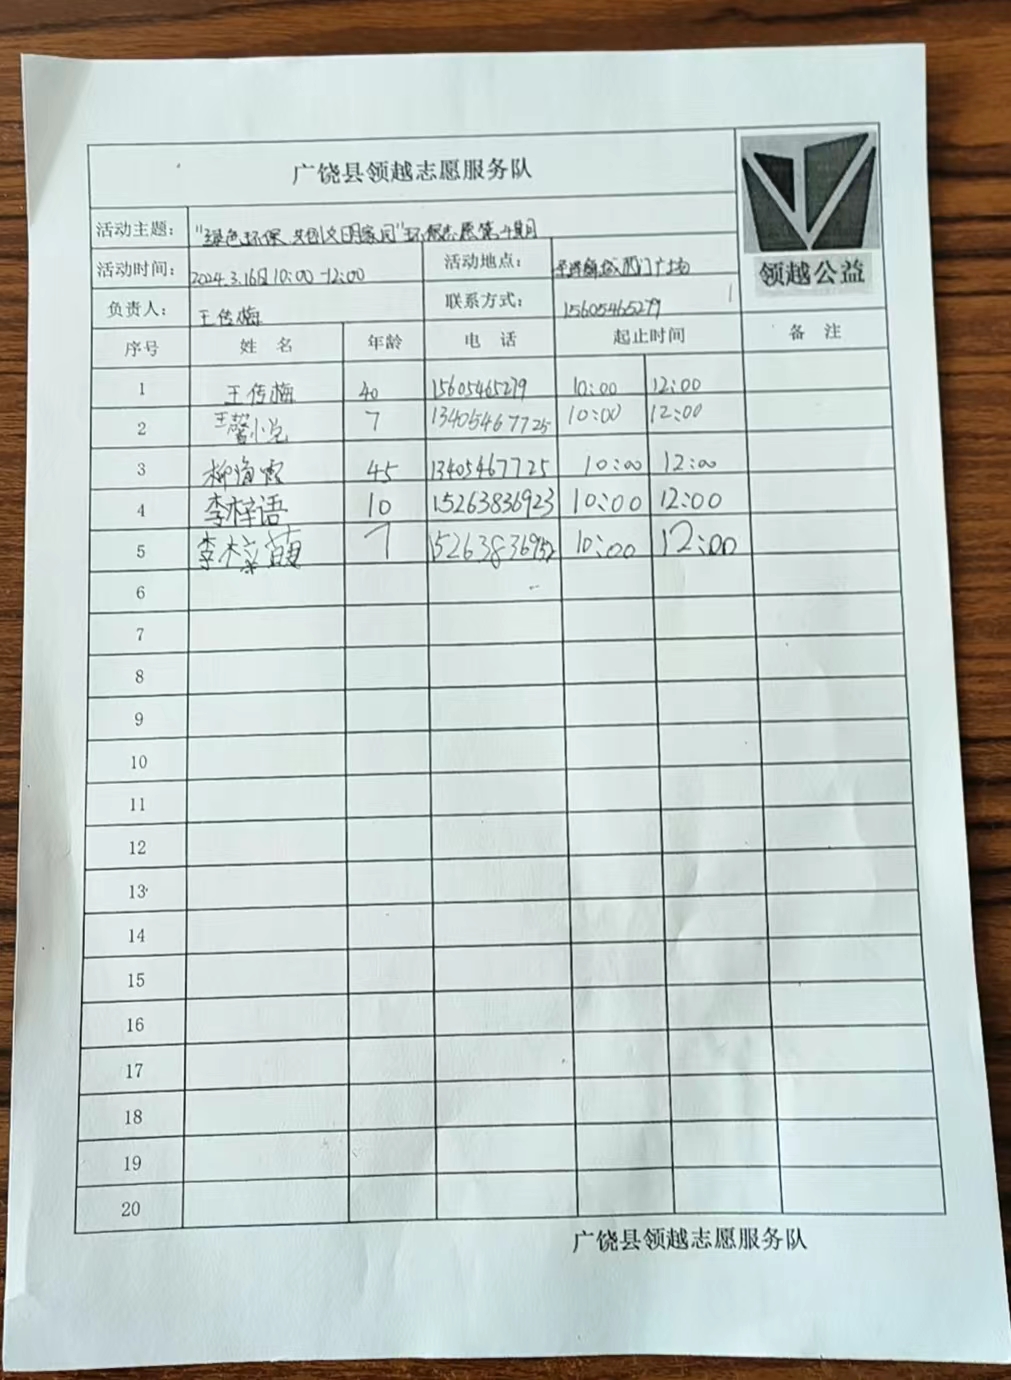 广饶县领越志愿服务队
领越公益
活动主题： "绿色环保 共创文明家园"环保志愿第十期
活动时间： 2024.3.16日10:00-12:00 活动地点： 西门广场
负责人： 王传梅 联系方式： 15605465279
序号 姓 名 年龄 电 话 起止时间 备 注
1 王传梅 40 15605465279 10:00 12:00
2 王馨悦 7 13405467725 10:00 12:00
3 柳海霞 45 13405467725 10:00 12:00
4 李梓语 10 15263836923 10:00 12:00
5 李梓萌 7 152638369 10:00 12:00
6
7
8
9
10
11
12
13
14
15
16
17
18
19
20
广饶县领越志愿服务队